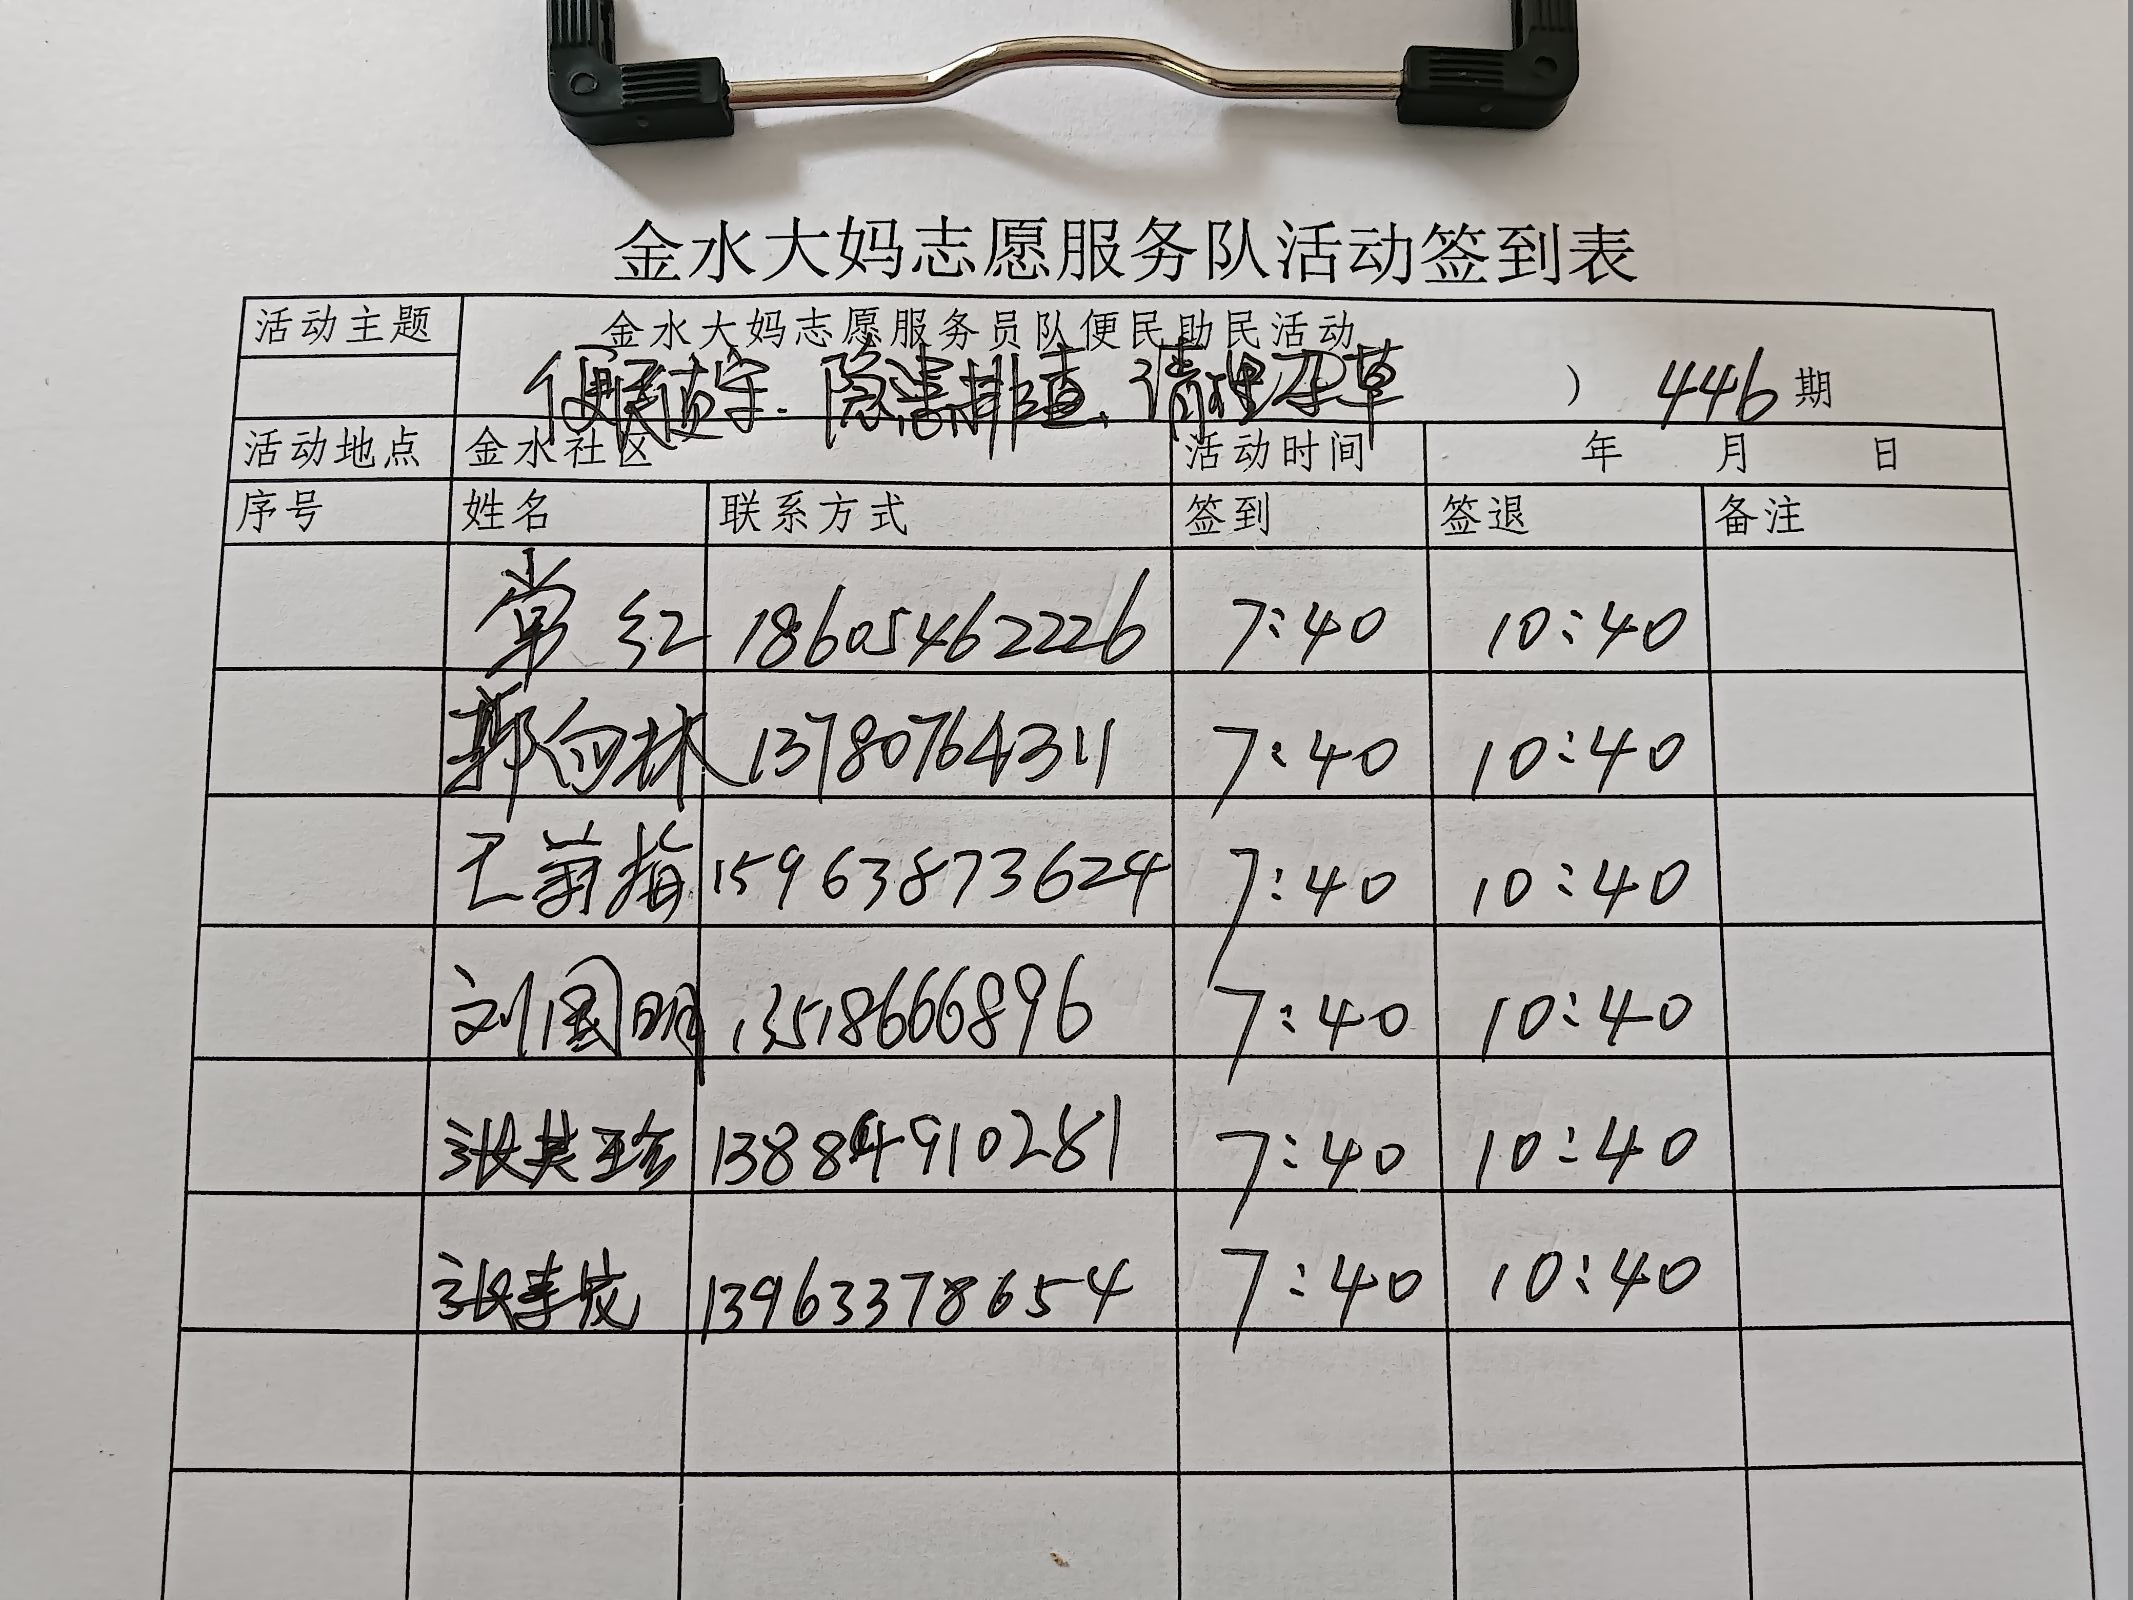 金水大妈志愿服务队活动签到表
活动主题 金水大妈志愿服务员队便民助民活动
便民值守、隐患排查、清理杂草 ） 446期
活动地点 金水社区 活动时间 年 月 日
序号 姓名 联系方式 签到 签退 备注
常红 18605462226 7:40 10:40
郭向林 13780764311 7:40 10:40
王 梅 15963873624 7:40 10:40
刘国明 13518666896 7:40 10:40
张其珍 13884910281 7:40 10:40
张 13963378654 7:40 10:40